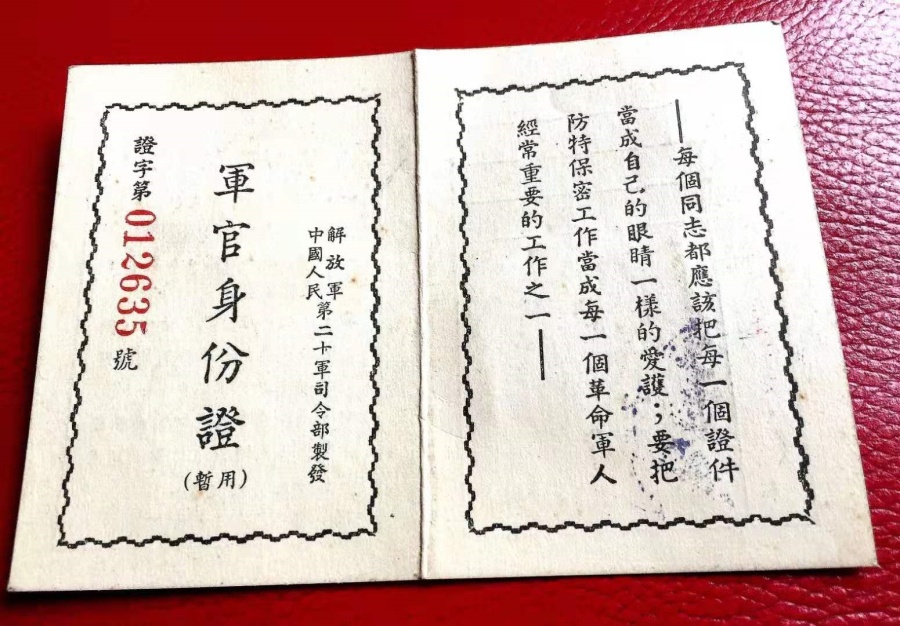 ——每個同志都應該把每一個證件
當成自己的眼睛一樣的愛護；要把
防特保密工作當成每一個革命軍人
經常重要的工作之一——
中國人民
解放軍
第二十軍司令部製發
軍官身份證
(暫用)
證字第012635號